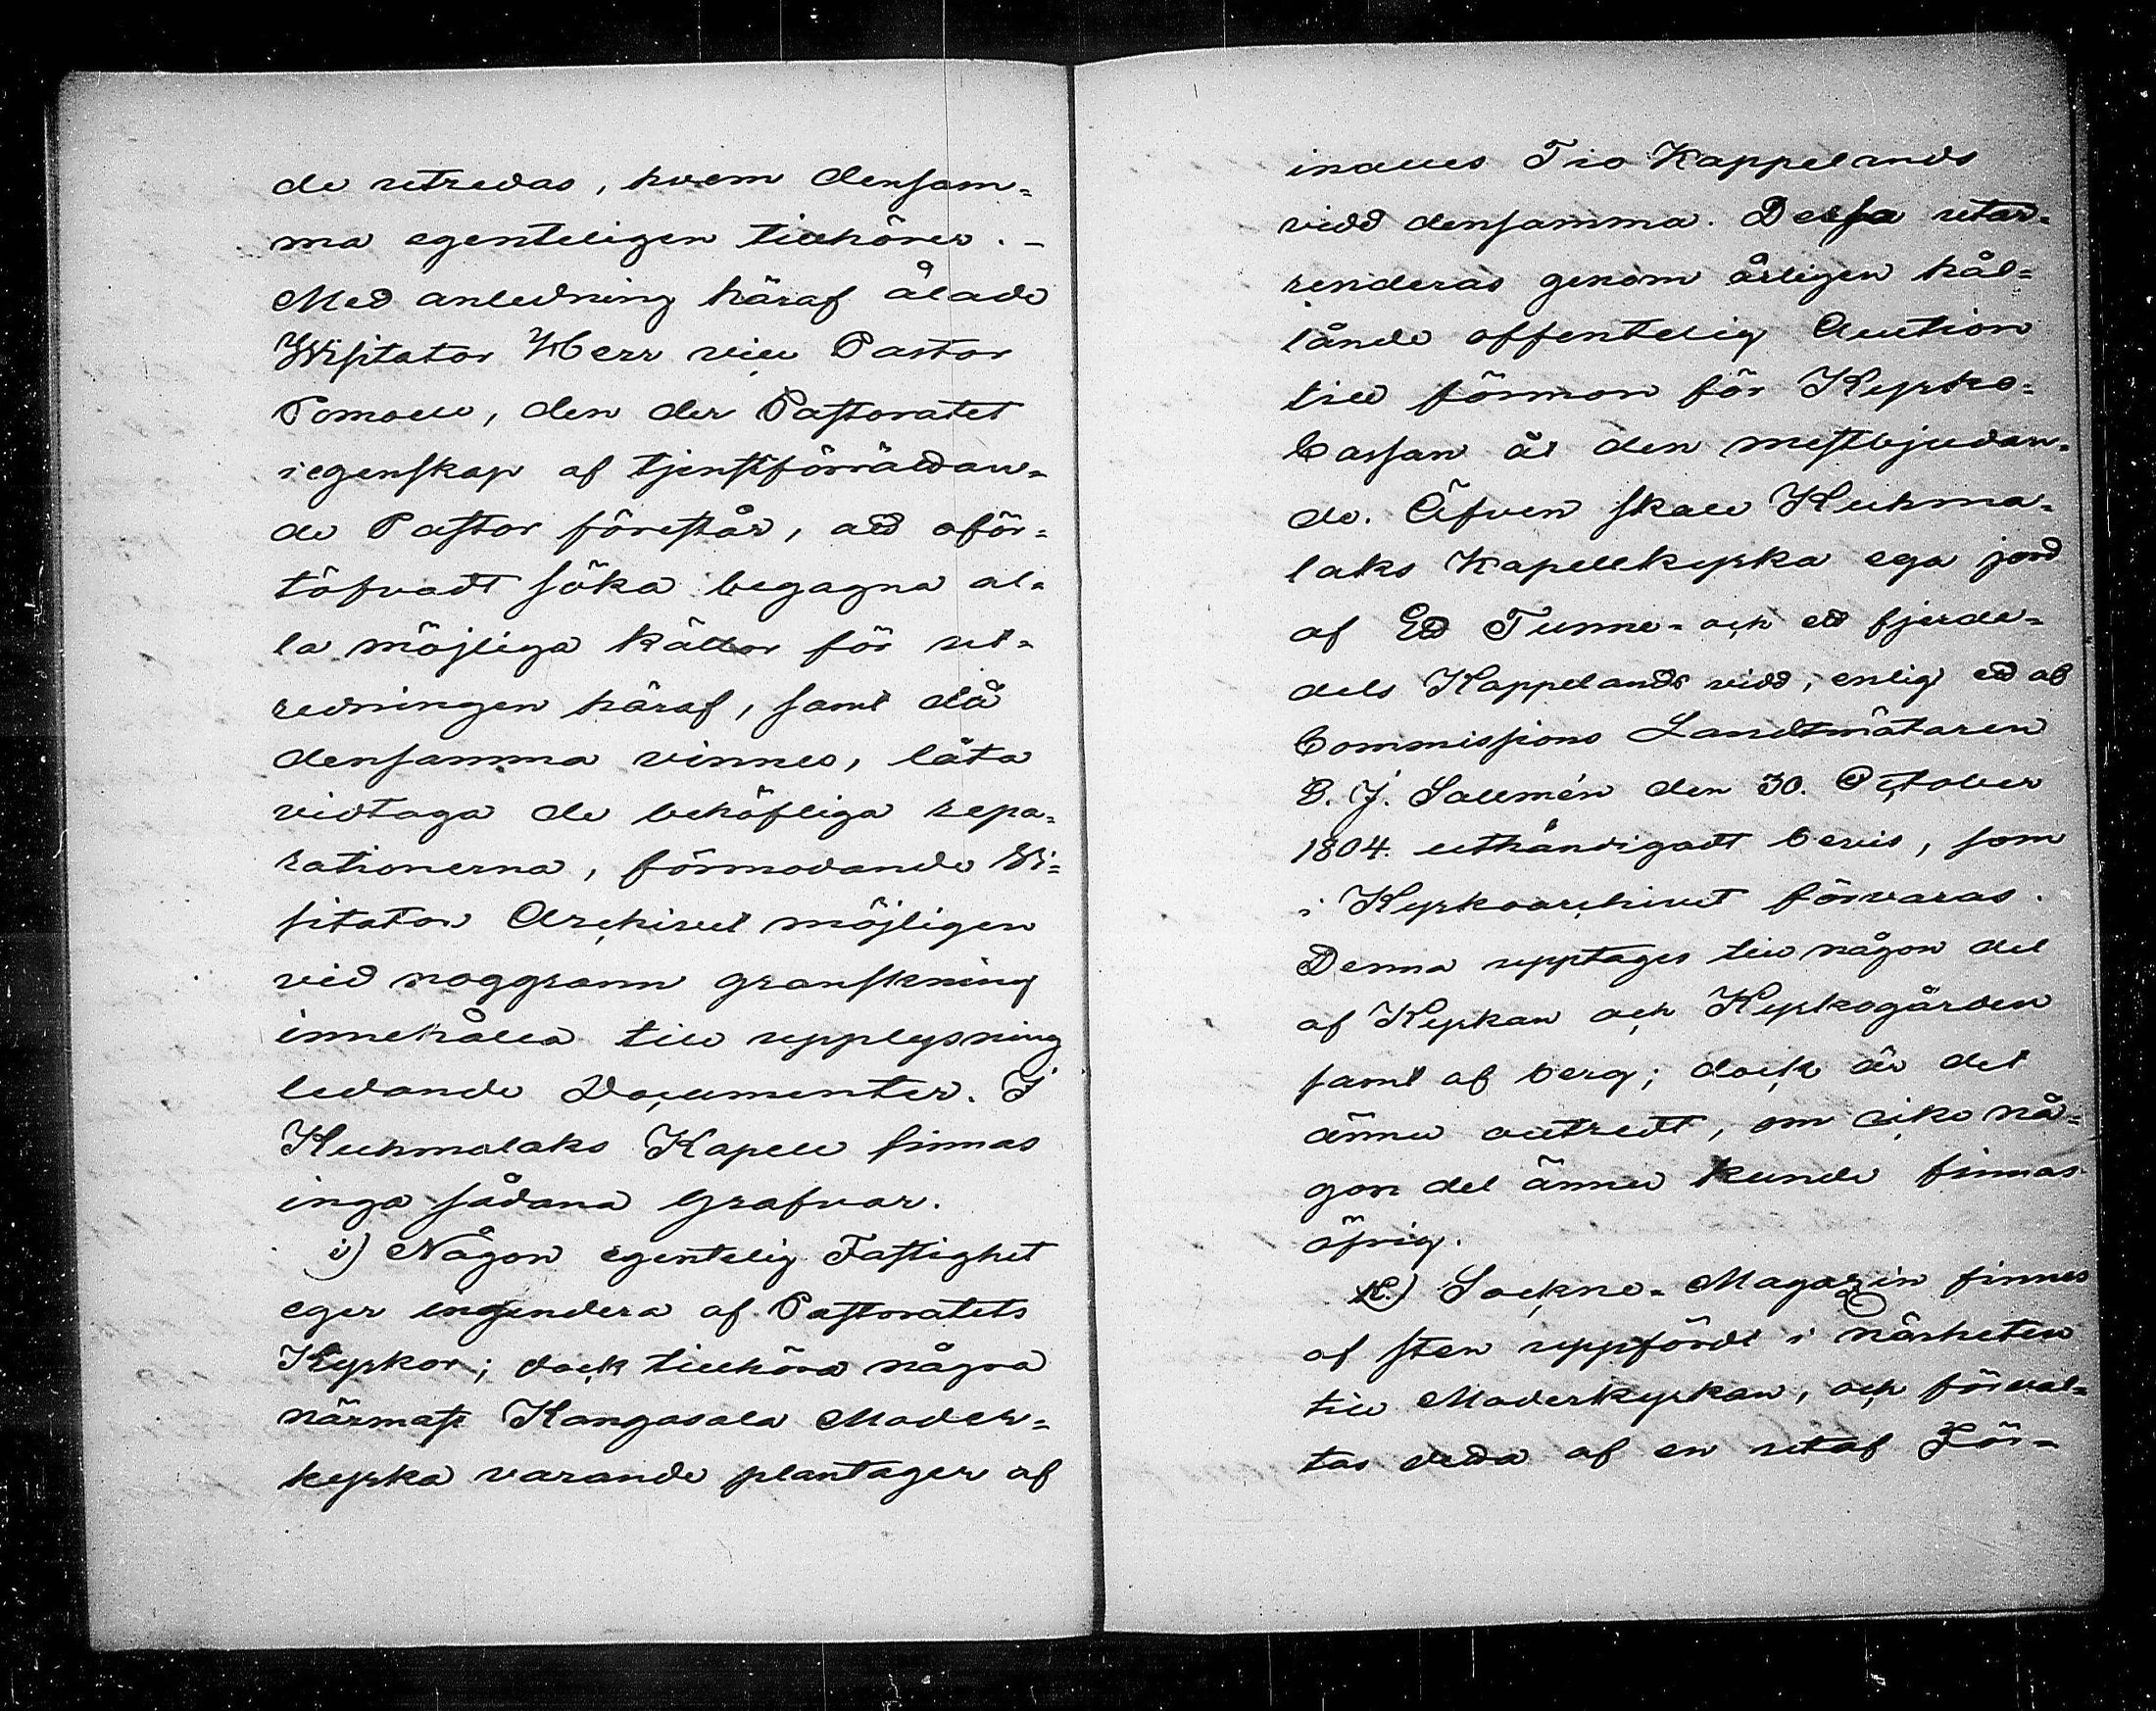 de utredas, hvem densam-
ma egenteligen tillhörer. -
Med anledning häraf ålade
Wisitator Herr vice Pastor
Pomoell, den der Pastoratet
i egenskap af tjenstförrättan-
de Pastor förestår, att oför-
töfvadt söka begagna al-
la möjliga källor för ut-
redningen häraf, samt då
densamma vinnes, låta
vidtaga de behöfliga repa-
rationerna, förmodande Wi-
sitator Archivet möjligen
vid noggrann granskning
innehålla till upplysning
ledande Documenter. I
Kuhmalaks Kapell finnas
inga sådana Grafvar.
i) Någon egentelig Fastighet
eger ingendera af Pastoratets
Kyrkor; dock tillhöra några
närmast Kangasala Moder-
kyrka varande plantager af
inalles Tio Kappelands
vidd densamma. Dessa utar-
renderas genom årligen hål-
lande offentelig Auction
till förmon för Kyrko-
Cassan åt den mestbjudan-
de. Äfven skall Kuhma-
laks Kapellkyrka ega jord
af Ett Tunne- och ett fjerde-
dels Kappelands vidd, enligt ett af
Commissions Landtmätaren
C. J. Sallmén den 30. October
1804. uthändigadt bevis, som
i Kyrkoarchivet förvaras.
Denna upptages till någon del
af Kyrkan och Kyrkogården
samt af berg; dock är det
ännu outredt, om icke nå-
gon del ännu kunde finnas
öfrig.
k.) Sockne-Magazin finnes
af sten uppfördt i närheten
till Moderkyrkan, och förval-
tas detta af en utaf För-